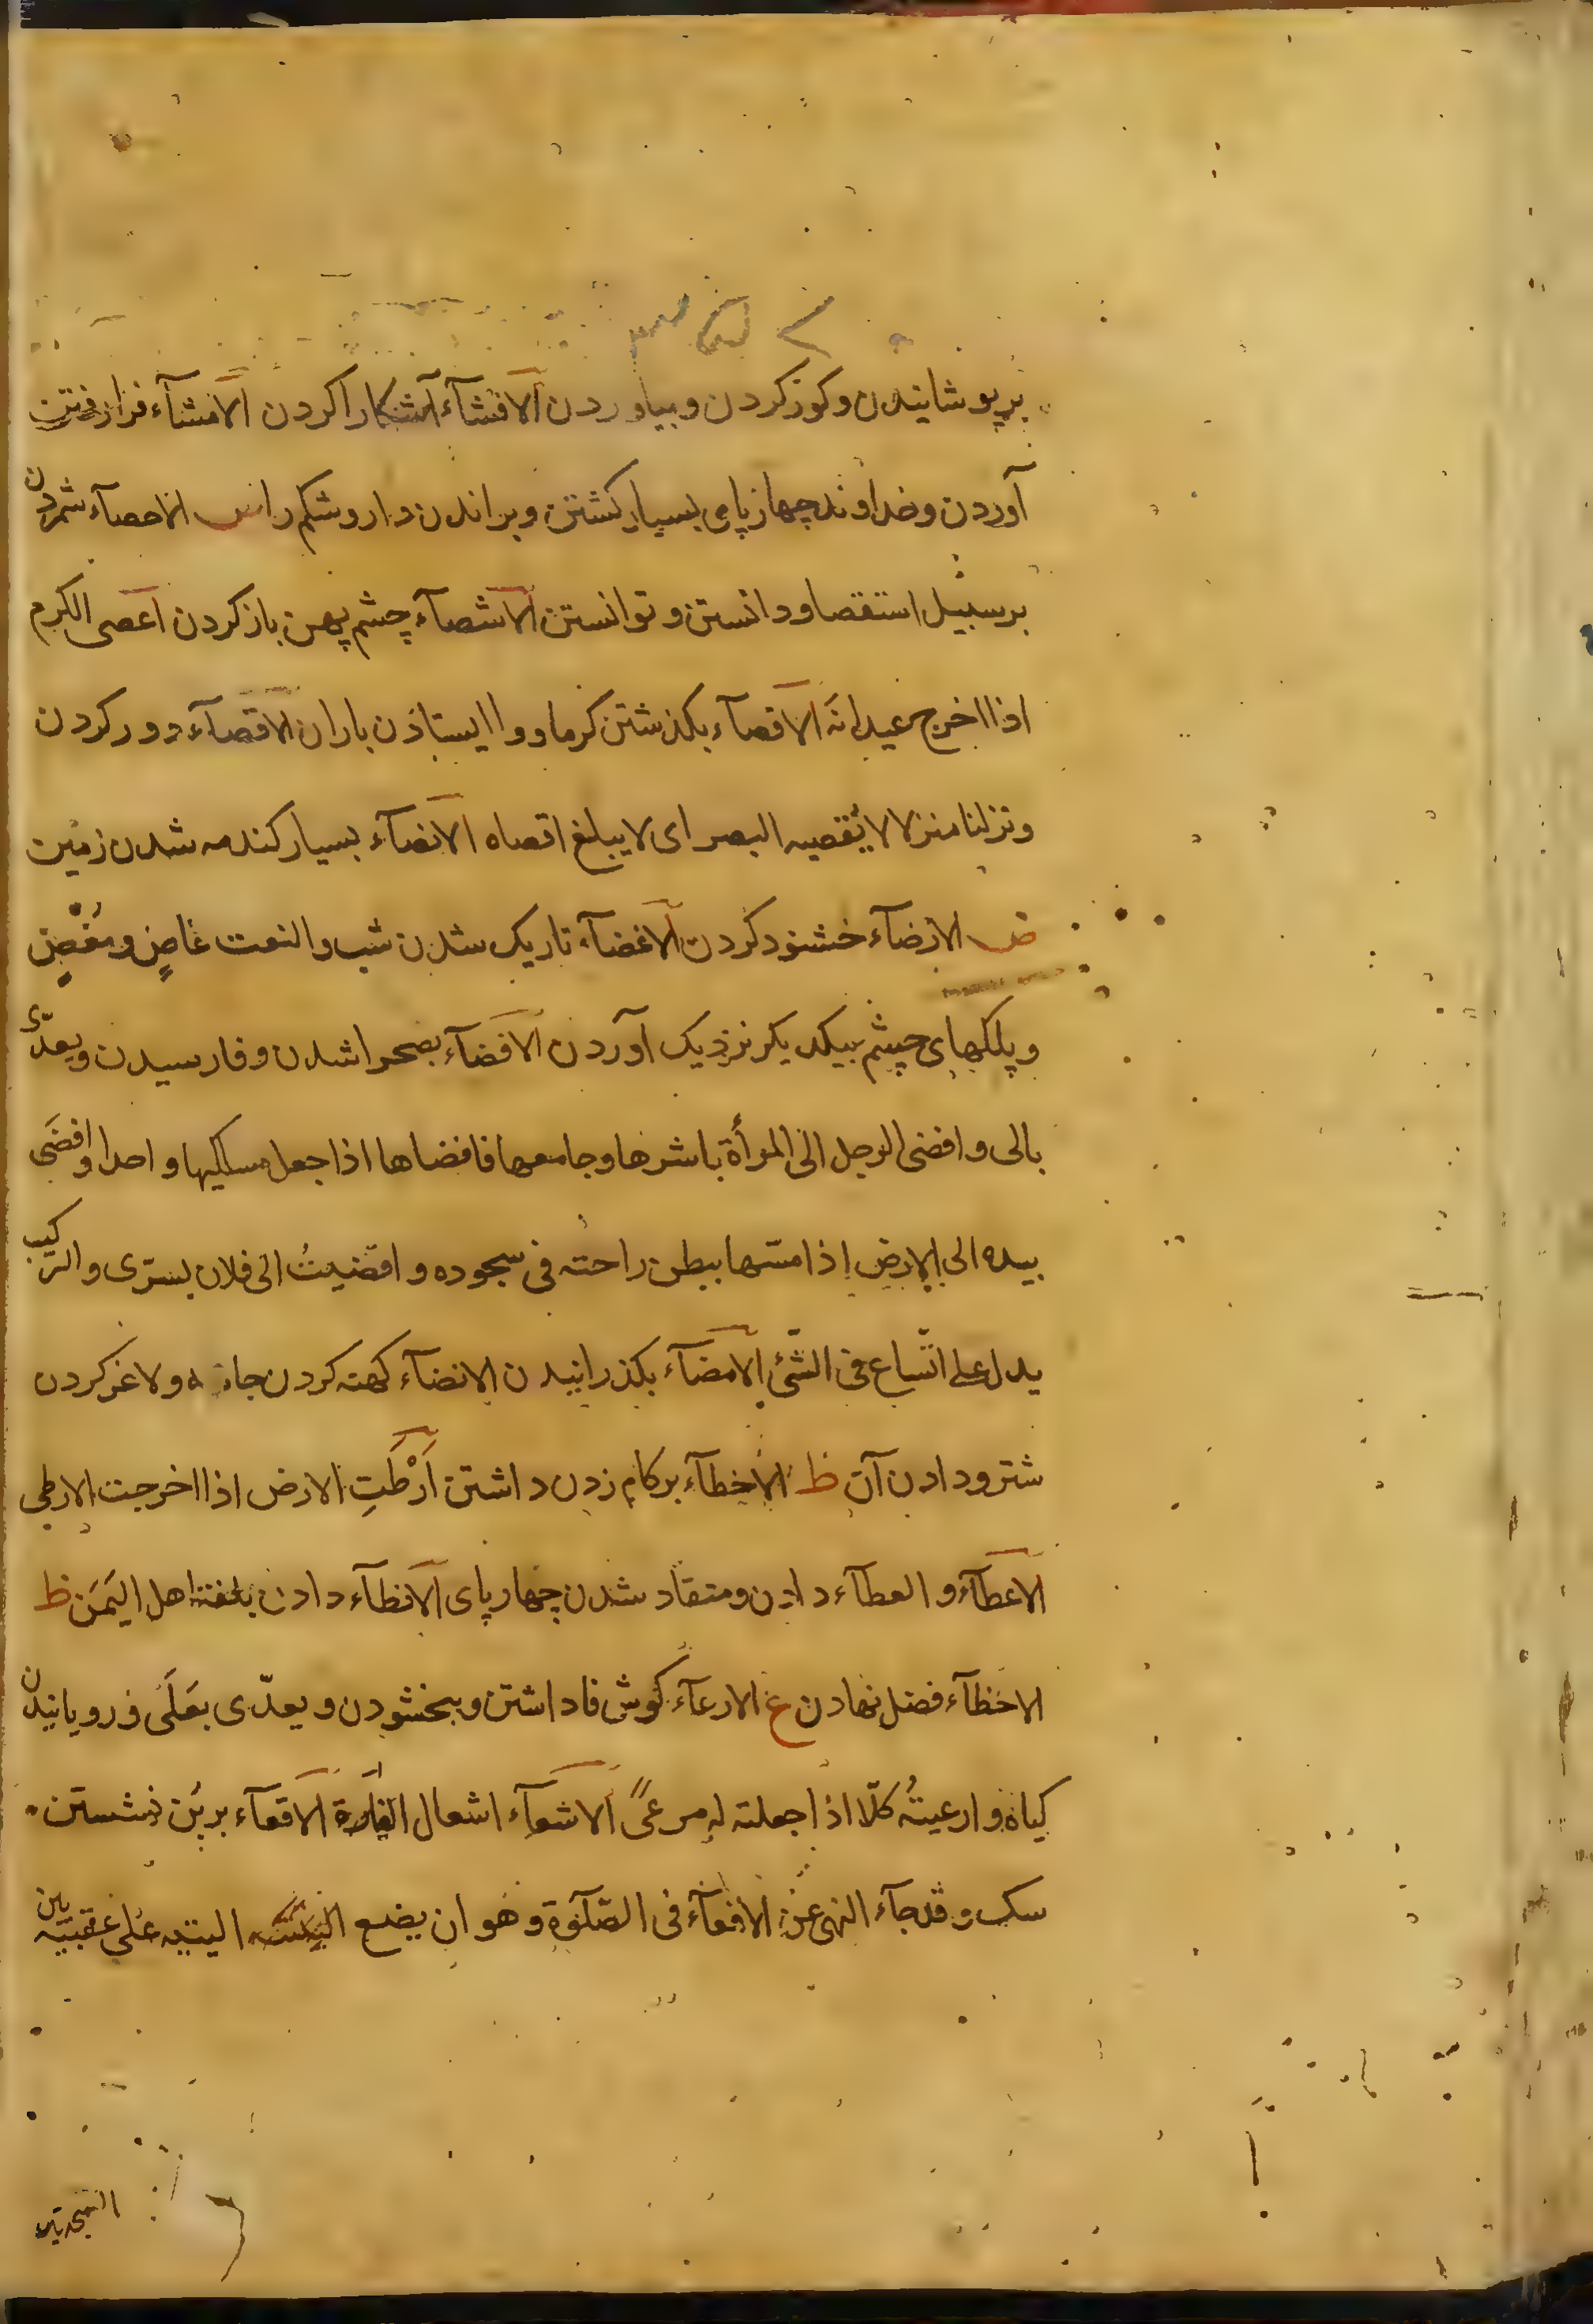 برپوشانیدن وکوزکردن وبیاوردن الافشآء آشکاراکردن الامشآء فرارفتن
آوردن وخداوند چهارپای بسیار کشتن وبراندن دارو شکم را ص الاحصآء شمردن
برسبیل استقصا ودانستن وتوانستن الاشصآء چشم پهن بازکردن اعصی الکرم
اذا اخرج عیدانه الاقصآء بکذشتن کرما ووا ایستاذن باران الاقصآء دورکردن
ونزلنا منزلا لا یُقصیه البصر ای لا یبلغ اقصاه الانصآء بسیار کندمه شدن زمین
ض الارضآء خشنود کردن الاغضآء تاریک شدن شب والنعت غاضٍ ومُغْضٍ
وپلکهای چشم بیکدیکر نزدیک آوردن الافضآء بصحرا شدن وفارسیدن ویعدّی
بالی وافضی الرجل الی المرأة باشرها وجامعها فافضاها اذا جعل مسلکیها واحدا وافضَی
بیده الی الارض اذا مسّها ببطن راحته فی سجوده وافضیتُ الی فلان بسرّی والترکیب
یدل علی اتّساع فی الشّئ الامضآء بکذرانیدن الانضآء کهنه کردن جامه ولاغرکردن
شتر ودادن آن ط الاخطآء برکام زدن داشتن اَرْطَتِ الارض اذا اخرجت الارطی
الاعطآء والعطآء دادن ومنقاد شدن چهارپای الانطآء دادن بلغة اهل الیَمَن ظ
الاحظآء فضل نهادن ع الارعآء کوش فاداشتن وببخشودن ویعدّی بعَلَی ورویانیدن
کیاه وارعیتُه کلأ اذا جعلته له مرعیً الاشعآء اشعال الغارة الاقعآء برین نشستن
سک وقد جآء النهی عن الاقعآء فی الصّلوٰة وهو ان یضع الیتیه علی عقبیه بین
السجدتین